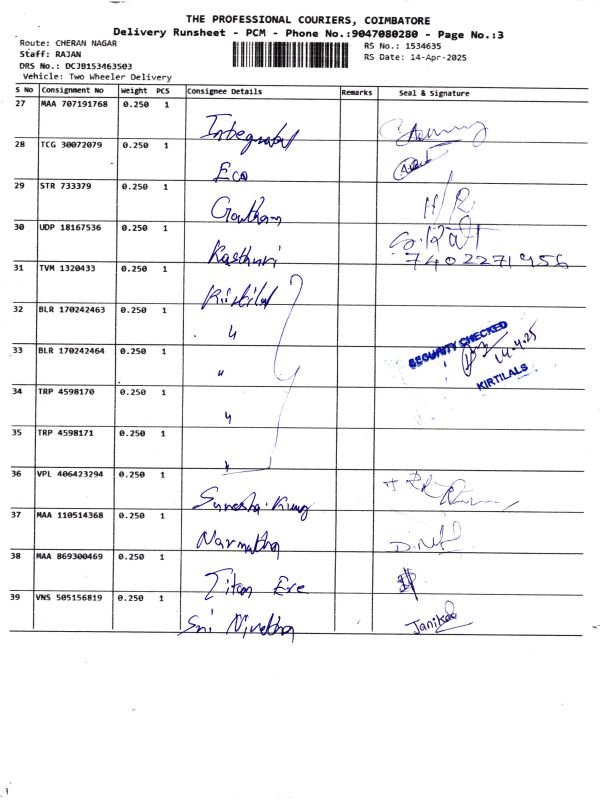 THE PROFESSIONAL COURIERS, COIMBATORE
Delivery Runsheet - PCM - Phone No.:9047080280 - Page No.:3
Route: CHERAN NAGAR
Staff: RAJAN
DRS No.: DCJB153463503
Vehicle: Two Wheeler Delivery
RS No.: 1534635
RS Date: 14-Apr-2025
S No Consignment No Weight PCS Consignee Details Remarks Seal & Signature
27 MAA 707191768 0.250 1 Integrated
28 TCG 30072079 0.250 1 Eco
29 STR 733379 0.250 1 Gowtham H/R
30 UDP 18167536 0.250 1 Kasthuri
7402271956
31 TVM 1320433 0.250 1 Kirtilal
32 BLR 170242463 0.250 1 "
SECURITY CHECKED
14.4.25
KIRTILALS
33 BLR 170242464 0.250 1 "
34 TRP 4598170 0.250 1 "
35 TRP 4598171 0.250 1
36 VPL 406423294 0.250 1
37 MAA 110514368 0.250 1 Narmatha
38 MAA 869300469 0.250 1 Titan Eye
39 VNS 505156819 0.250 1 Sri Nivetha